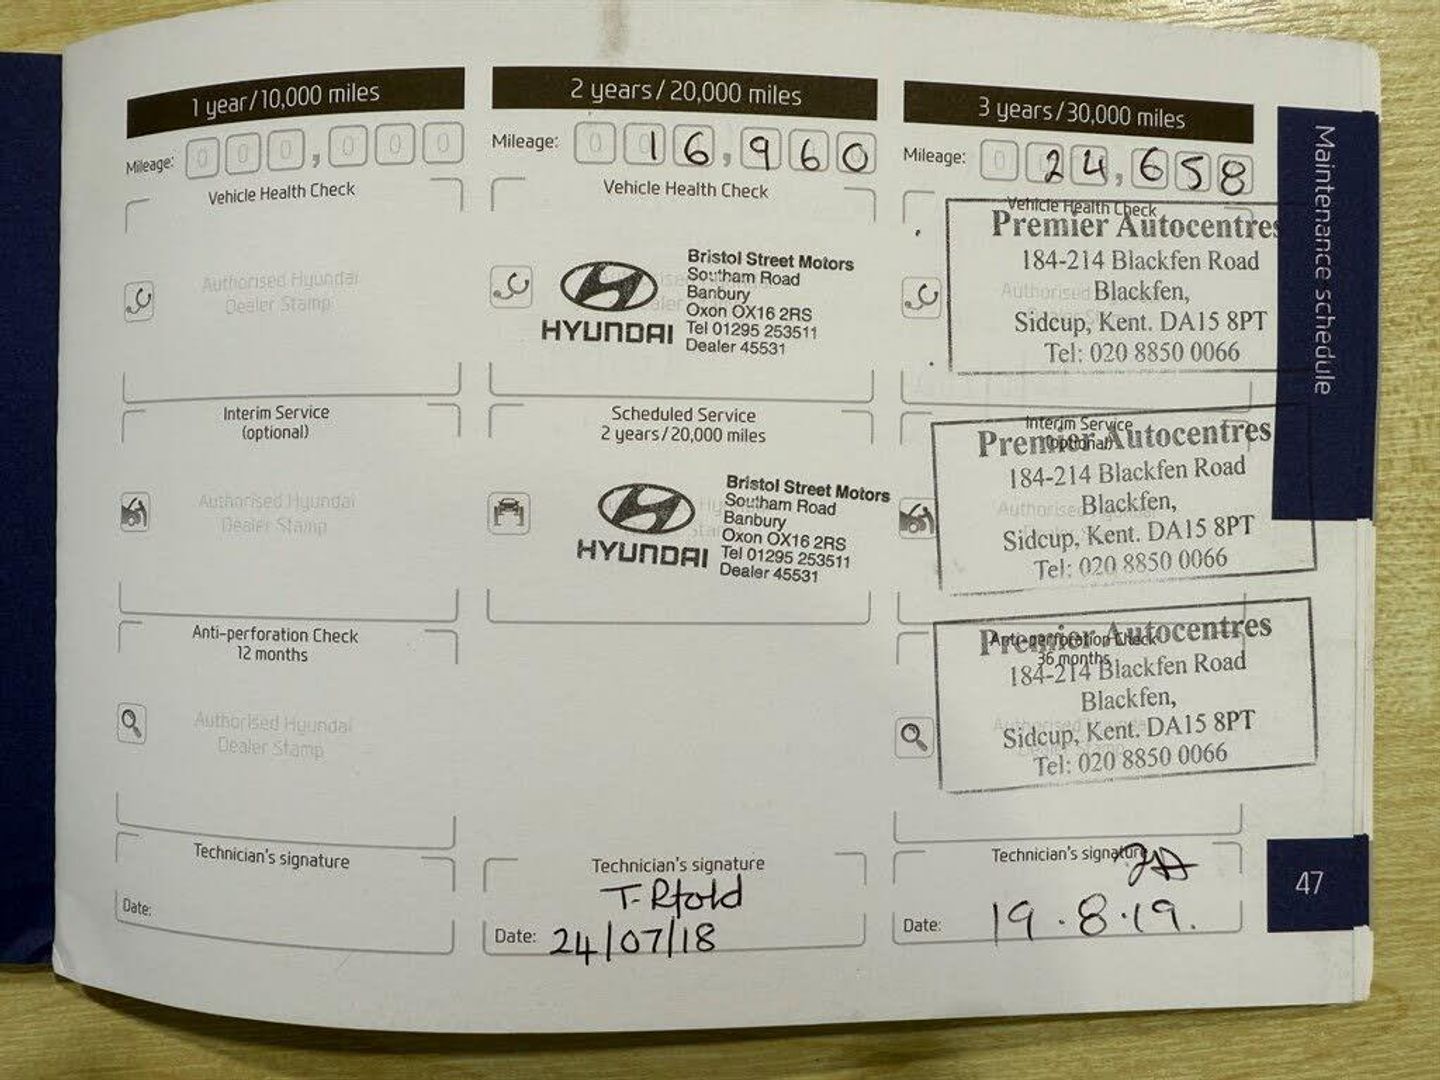 1 year/10,000 miles
Mileage: 000,000
Vehicle Health Check
Authorised Hyundai
Dealer Stamp
Interim Service
(optional)
Authorised Hyundai
Dealer Stamp
Anti-perforation Check
12 months
Authorised Hyundai
Dealer Stamp
Technician's signature
Date:
2 years/20,000 miles
Mileage: 016,960
Vehicle Health Check
HYUNDAI
Bristol Street Motors
Southam Road
Banbury
Oxon OX16 2RS
Tel 01295 253511
Dealer 45531
Scheduled Service
2 years/20,000 miles
HYUNDAI
Bristol Street Motors
Southam Road
Banbury
Oxon OX16 2RS
Tel 01295 253511
Dealer 45531
Technician's signature
Date: 24/07/18
3 years/30,000 miles
Mileage: 024,658
Vehicle Health Check
Premier Autocentres
184-214 Blackfen Road
Authorised
Blackfen,
Sidcup, Kent. DA15 8PT
Tel: 020 8850 0066
Interim Service
(optional)
Premier Autocentres
184-214 Blackfen Road
Authorised
Blackfen,
Sidcup, Kent. DA15 8PT
Tel: 020 8850 0066
Anti-perforation Check
36 months
Premier Autocentres
184-214 Blackfen Road
Blackfen,
Authorised Hyundai
Sidcup, Kent. DA15 8PT
Tel: 020 8850 0066
Technician's signature
Date: 19.8.19.
Maintenance schedule
47